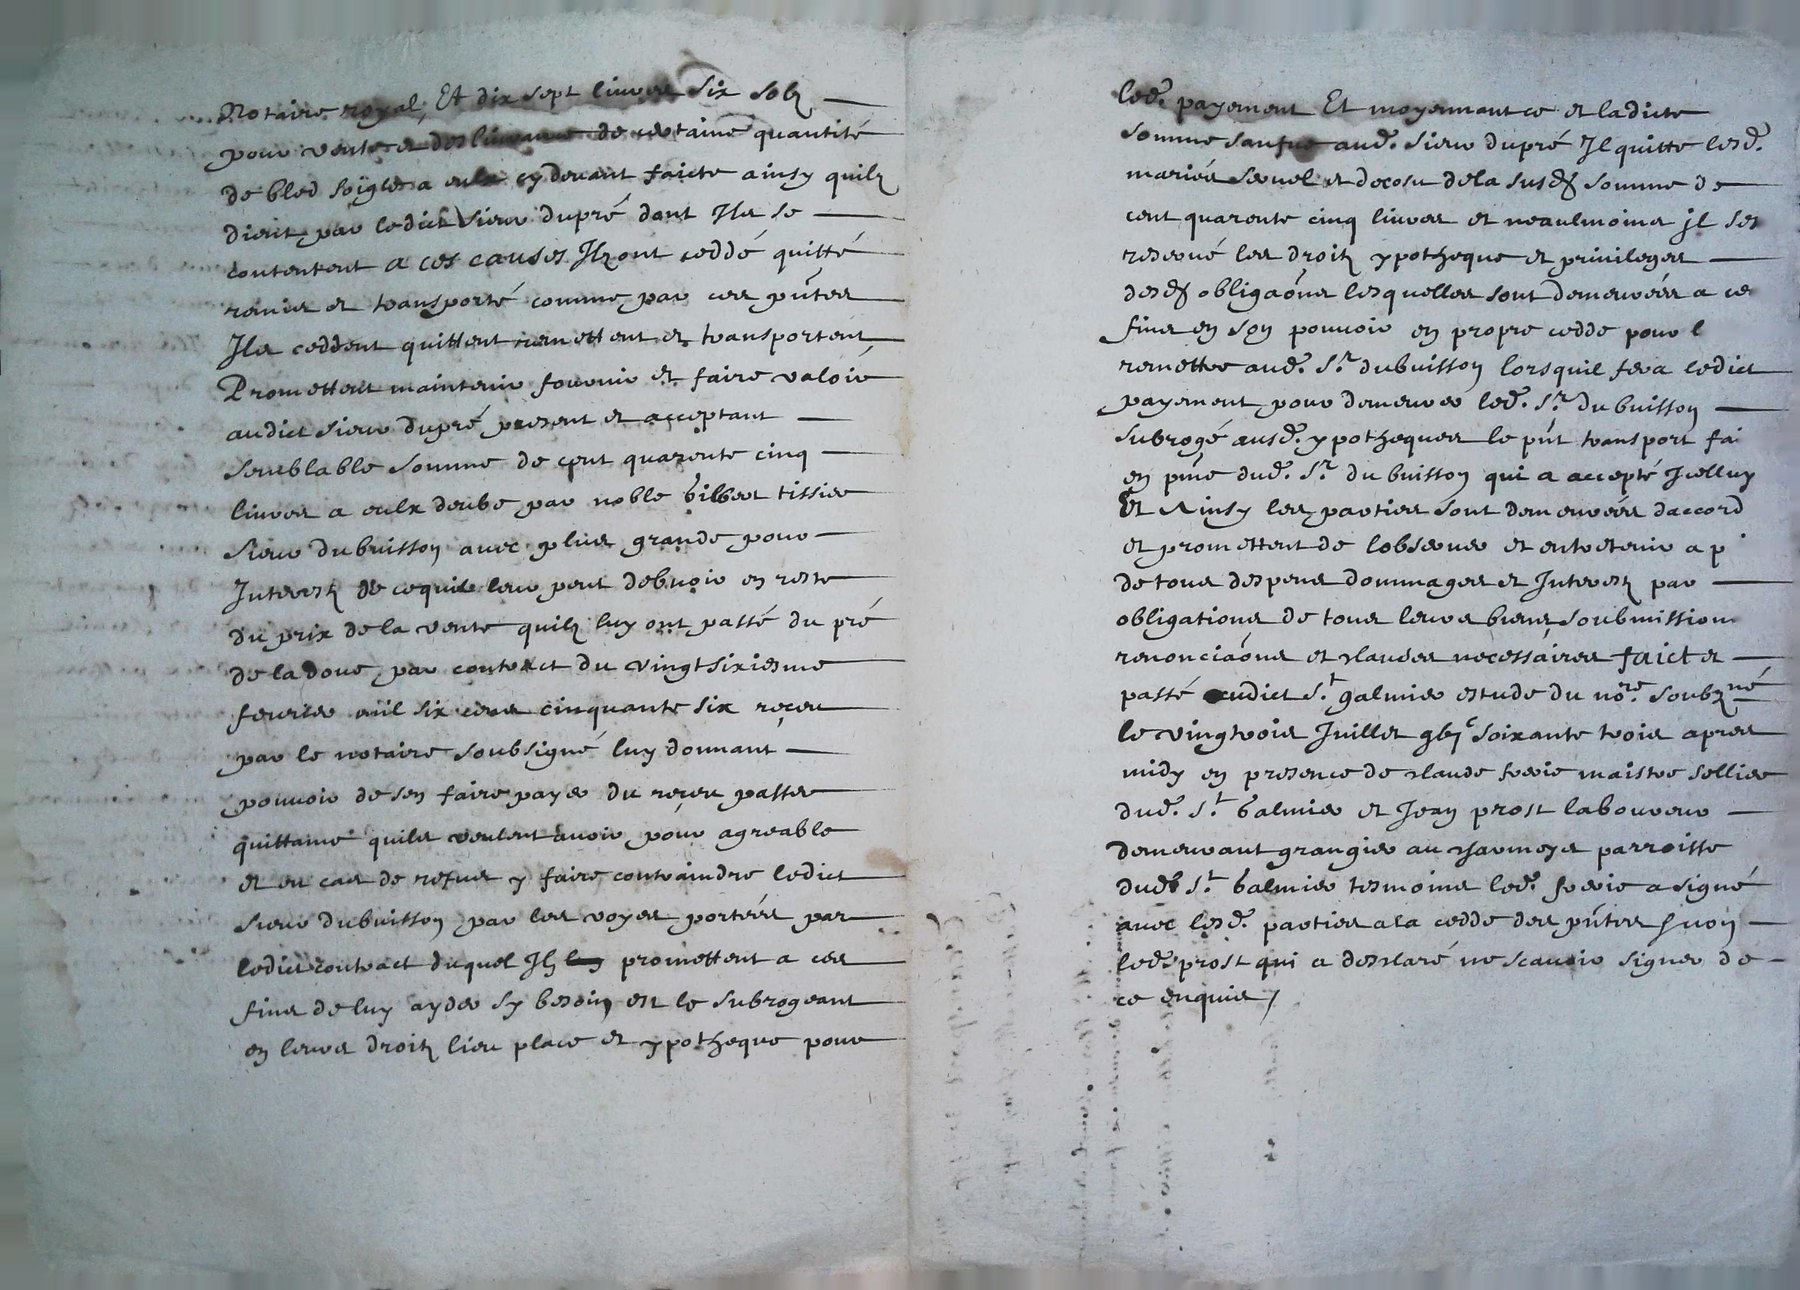 Notaire royal, Et dix sept livres six solz
pour vente et deslivrance de certaine quantité
de bled soigle a eulx cy devant faicte ainsy quilz
dient par ledict sieur dupré dont Ilz se
contentent a ces causes Ilz ont ceddé quitté
remis et transporté comme par ces pntes
Ilz ceddent quittent remettent et transportent
Promettent maintenir fournir et faire valoir
audict sieur dupré present et acceptant
semblable somme de cent quarente cinq
livres a eulx deube par noble Gilbert tissier
sieur dubuisson avec plus grande pour
Interestz de ce quil leur peut debvoir en reste
du prix de la vente quilz luy ont passé du pré
de la doue par contract du vingt sixiesme
febvrier mil six cens cinquante six reçeu
par le notaire soubsigné luy donnant
pouvoir de sen faire payer du reçeu passer
quittance quilz veulent avoir pour agreable
et en cas de refus y faire contraindre ledict
sieur dubuisson par les voyes portées par
ledict contract duquel Ilz promettent a ces
fins de luy ayder sy besoing est le subrogeant
en leurs droitz lieu place et ypotheque pour
led. payement Et moyennant ce et ladicte
somme sauf aud. sieur dupré Il quitte lesd.
mariés et de la susd somme de
cent quarente cinq livres et neaulmoins il ses
reservé les droitz ypotheque et privileges
desd obligaons lesquelles sont demeurées a ces
fins en son pouvoir en propre cedde pour l
remettre aud. Sr. dubuisson lorsquil fera ledict
payement pour demeurer led. Sr. dubuisson
subrogé ausd. ypotheques le pnt transport fai
en pnce dud. Sr. dubuisson qui a accepté Icelluy
Et Ainsy les parties sont demeurées daccord
et promettent de lobserver et entretenir a p
de tous despens dommages et Interestz par
obligations de tous leurs biens soubmissions
renonciaons et clauses necessaires faict et
passé audict St. galmier estude du nore. soubzné
le vingtrois Juillet gbjc soixante trois apres
midy en presence de claude maistre sellier
dud. St. Galmier et Jean prost laboureur
demeurant grangier au parroisse
dud. St. Galmier tesmoins led. a signé
avec lesd. parties a la cedde des pntes et non
led. prost qui a desclaré ne scavoir signer de
ce enquis /